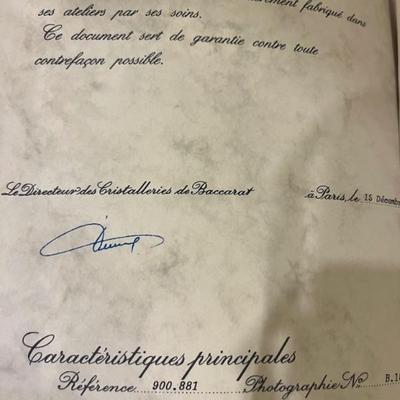 fabriqué dans
ses ateliers par ses soins.
Ce document sert de garantie contre toute
contrefaçon possible.
Le Directeur des Cristalleries de Baccarat à Paris, le 15 Décemb
Caractéristiques principales
Référence 900.881 Photographie No B.1